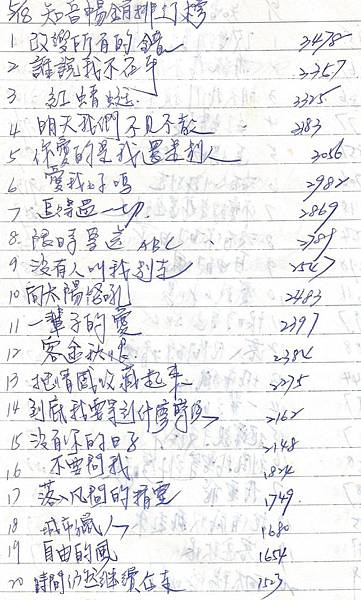 5/8 知音暢銷排行榜
1 改變所有的錯 3478
2 誰說我不在乎 3357
3 紅蜻蜓 3325
4 明天我們不見不散 3183
5 你愛的是我還是別人 3056
6 愛我好嗎 2982
7 過一切 2869
8 限時專送 ABC 2789
9 沒有人叫我別走 2547
10 向太陽怒吼 2483
11 一輩子的愛 2397
12 2384
13 把情感收藏起來 2275
14 到底我要等到什麼時候 2162
15 沒有你的日子 2148
16 不要問我 1824
17 落入凡間的精靈 1749
18 城市獵人 1680
19 自由的風 1654
20 時間仍然繼續在走 1523